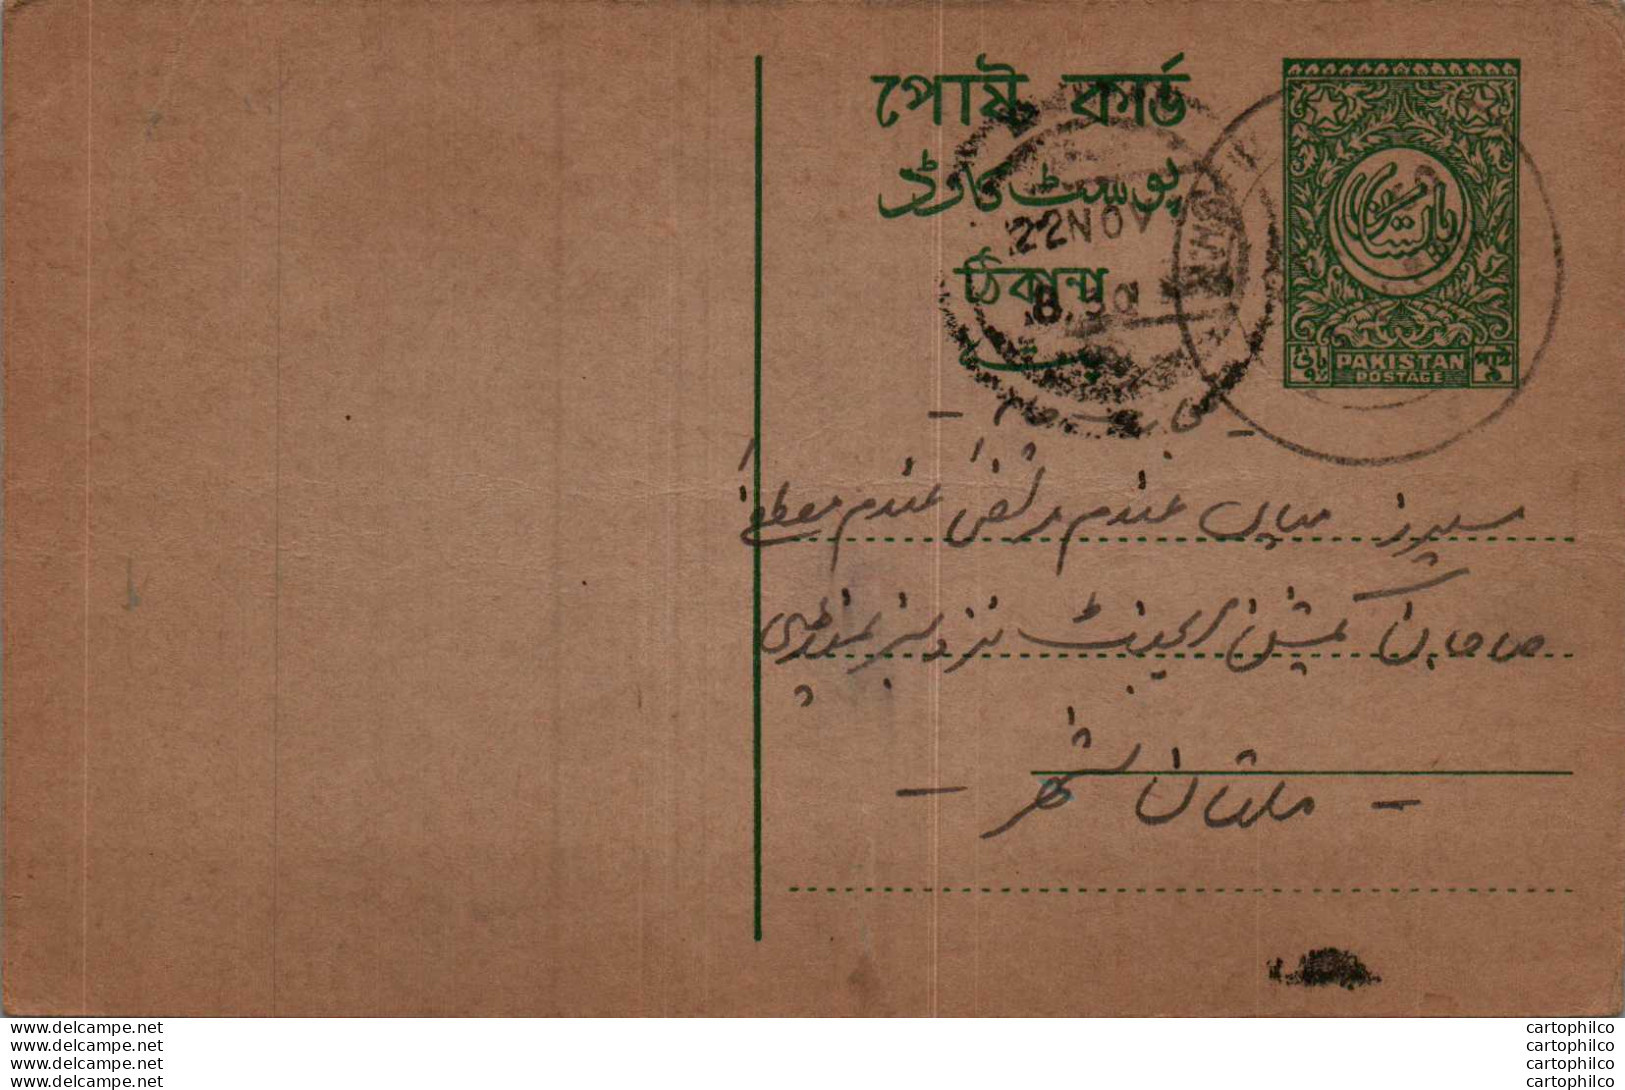 পোষ্ট কার্ড
پوسٹ کارڈ
22 NOV
ঠিকানা
8.30
پتہ
پاکستان
PAKISTAN
POSTAGE
میاں غلام مرتضیٰ غلام مصطفےٰ
صاحبان کمیشن ایجنٹ نزد سبزمنڈی
- ملتان شہر -
www.delcampe.net
www.delcampe.net
www.delcampe.net
www.delcampe.net
cartophilco
cartophilco
cartophilco
cartophilco